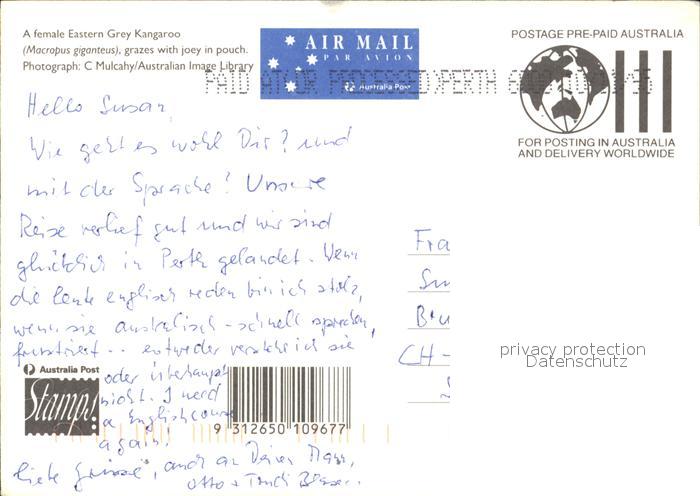 A female Eastern Grey Kangaroo
(Macropus giganteus), grazes with joey in pouch.
Photograph: C Mulcahy/Australian Image Library
AIR MAIL
PAR AVION
Australia Post
POSTAGE PRE-PAID AUSTRALIA
FOR POSTING IN AUSTRALIA
AND DELIVERY WORLDWIDE
PAID AT OR PROCESSED PERTH
Hello Susan,
Wie geht es wohl Dir? und
mit der Sprache? Unsere
Reise verlief gut und wir sind
glücklich in Perth gelandet. Wenn
die Leute englisch reden bin ich stolz,
wenn sie australisch-schnell sprechen,
frustriert.. entweder verstehe ich sie
oder überhaupt
nicht. I need
a Englishcourse
again.
liebe Grüsse, auch an Deinen Mann,
Otto + Trudi
Australia Post
Stamps!
9 312650 109677
Fra
Su
CH-
privacy protection
Datenschutz